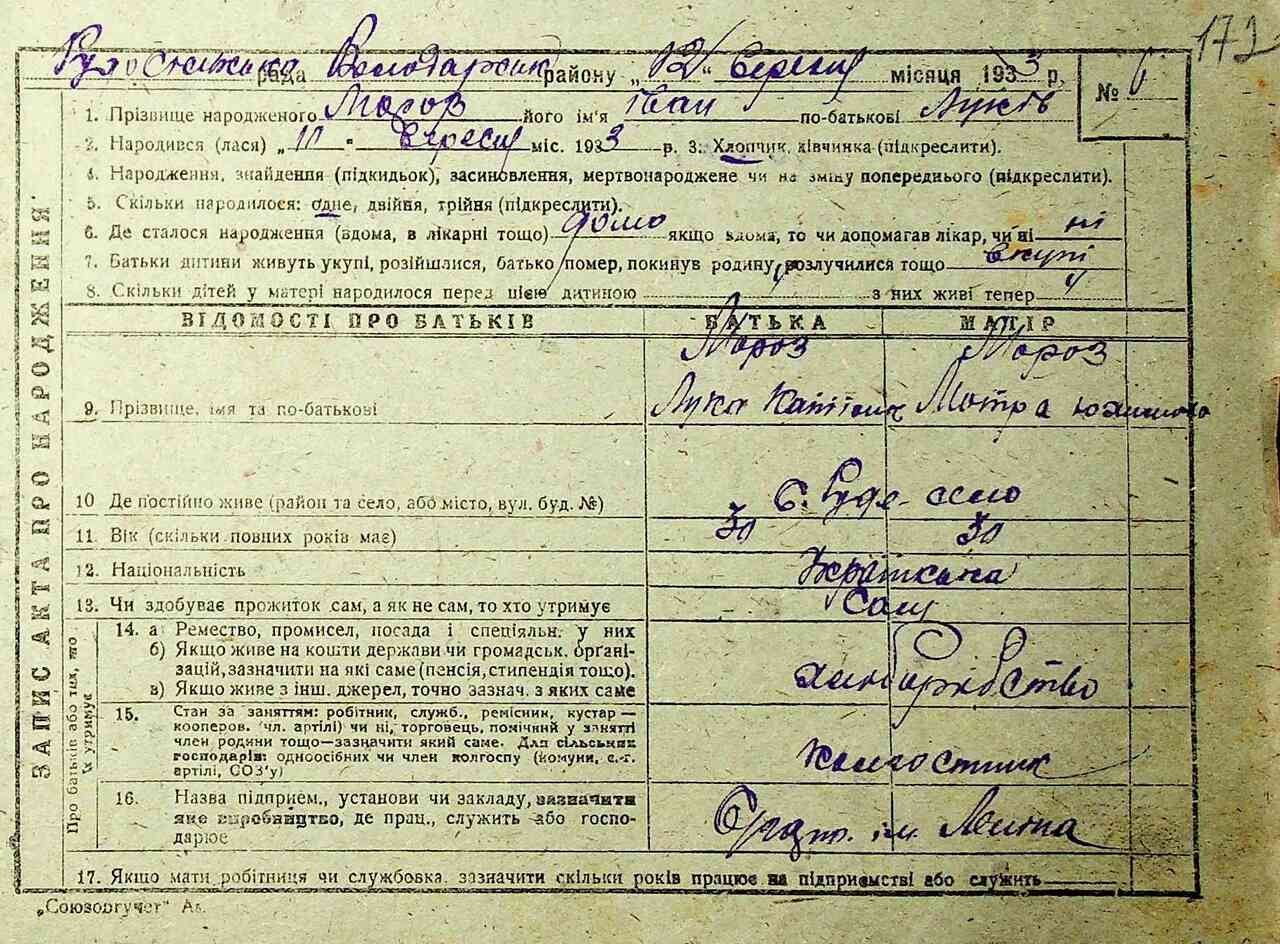 172
Рудосельська рада Володарськ району „12" Вересня місяця 1933 р. № 6
1. Прізвище народженого Мороз його ім'я Іван по-батькові Луків
2. Народився (лася) „11" Вересня міс. 1933 р. 3. Хлопчик, дівчинка (підкреслити).
4. Народження, знайдення (підкидьок), засиновлення, мертвонароджене чи на зміну попереднього (підкреслити).
5. Скільки народилося: одне, двійня, трійня (підкреслити).
6. Де сталося народження (вдома, в лікарні тощо) дома якщо вдома, то чи допомагав лікар, чи ні ні
7. Батьки дитини живуть укупі, розійшлися, батько помер, покинув родину, розлучилися тощо вкупі
8. Скільки дітей у матері народилося перед цією дитиною з них живі тепер
ВІДОМОСТІ ПРО БАТЬКІВ БАТЬКА МАТІР
Мороз Мороз
9. Прізвище, імя та по-батькові Лука Мотра
10 Де постійно живе (район та село, або місто, вул. буд. №) с. Руде село
11. Вік (скільки повних років має) 30 30
12. Національність
13. Чи здобуває прожиток сам, а як не сам, то хто утримує сам
14. а Ремество, промисел, посада і спеціяльн. у них
б) Якщо живе на кошти держави чи громадськ. органі-
зацій, зазначити на які саме (пенсія, стипендія тощо).
в) Якщо живе з інш. джерел, точно зазнач. з яких саме хліборобство
15. Стан за заняттям: робітник, служб., ремісник, кустар—
кооперов. (чл. артілі) чи ні, торговець, помічний у занятті
член родини тощо—зазначити який саме. Для сільських
господарів: одноосібних чи член колгоспу (комуни, с.-г.
артілі, СОЗ'у) колгоспник
16. Назва підприєм., установи чи закладу, зазначити
яке виробництво, де прац., служить або госпо-
дарює ім. Леніна
17. Якщо мати робітниця чи службовка зазначити скільки років працює на підприємстві або служить
„Союзоргучет"
ЗАПИС АКТА ПРО НАРОДЖЕННЯ
Про батьків або тих, що
їх утримує